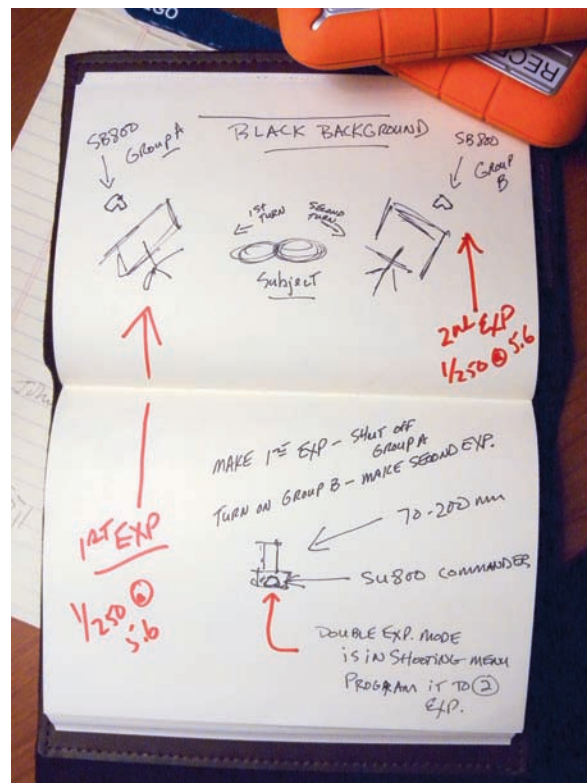 EGO
RECT
BLACK BACKGROUND
SB800
GROUP A
SB800
GROUP
B
1ST
TURN
SECOND
TURN
Subject
2nd EXP
1/250 @ 5.6
MAKE 1ST EXP - SHUT OFF
GROUP A
TURN ON GROUP B - MAKE SECOND EXP.
70-200 mm
SU800 COMMANDER
1ST EXP
1/250 @
5.6
DOUBLE EXP. MODE
IS IN SHOOTING MENU
PROGRAM IT TO 2
EXP.